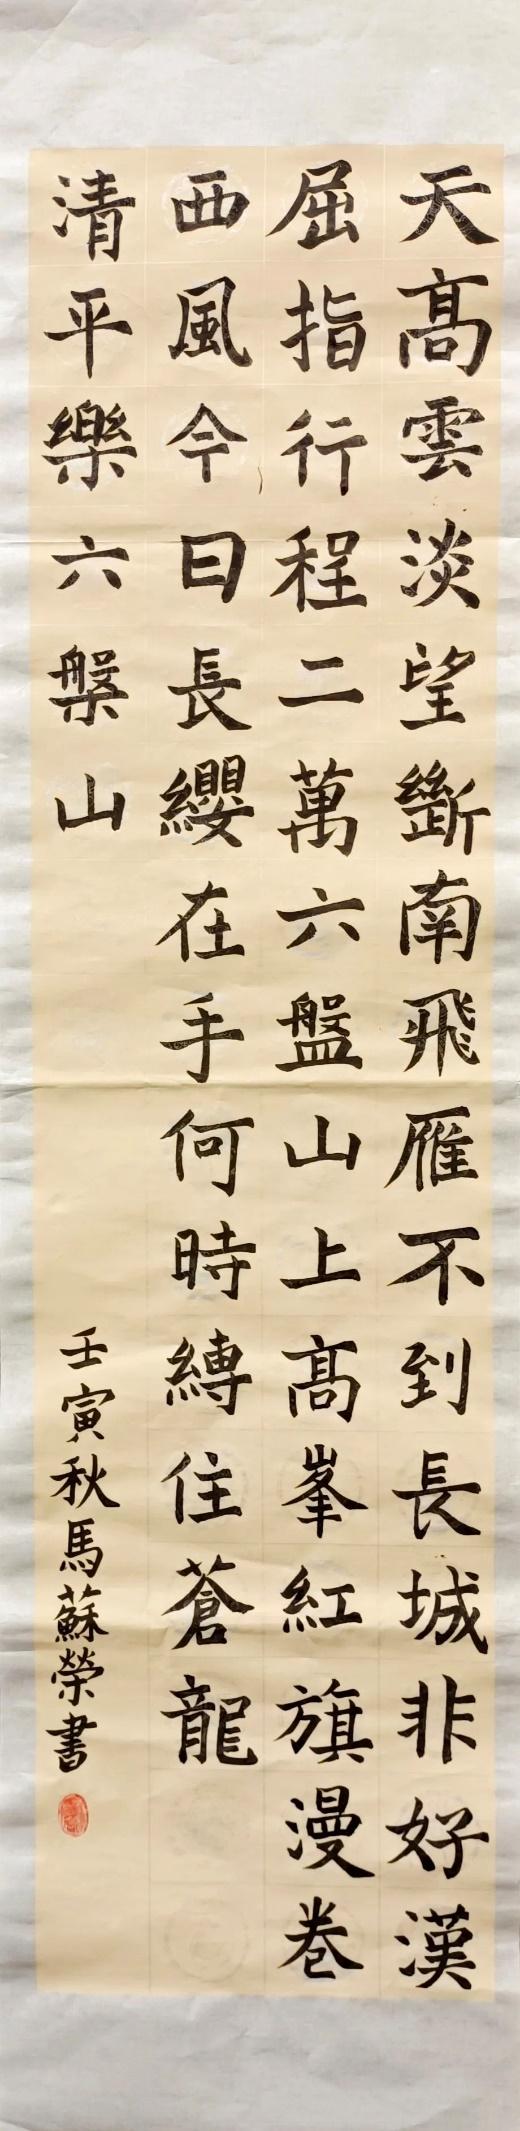 天高雲淡望斷南飛雁不到長城非好漢
屈指行程二萬六盤山上高峯紅旗漫卷
西風今日長纓在手何時縛住蒼龍
清平樂六槃山
壬寅秋馬蘇榮書